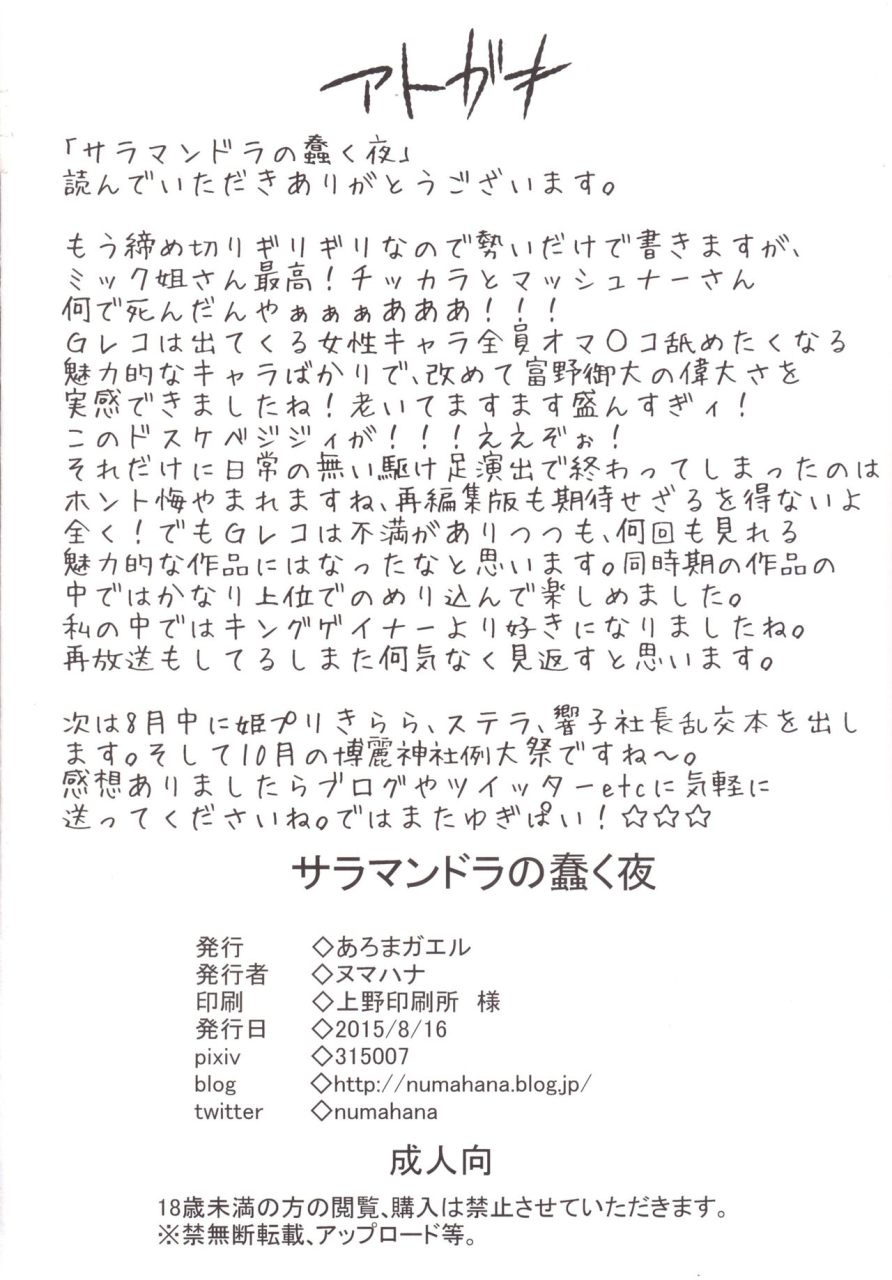 アトガキ
「サラマンドラの蠢く夜」
読んでいただきありがとうございます。
もう締め切りギリギリなので勢いだけで書きますが、
ミック姐さん最高!チッカラとマッシュナーさん
何で死んだんやぁぁぁあああ!!!
Gレコは出てくる女性キャラ全員オマ〇コ舐めたくなる
魅力的なキャラばかりで、改めて富野御大の偉大さを
実感できましたね!老いてますます盛んすぎィ!
このドスケベジジィが!!!ええぞぉ!
それだけに日常の無い駆け足演出で終わってしまったのは
ホント悔やまれますね、再編集版も期待せざるを得ないよ
全く!でもGレコは不満がありつつも、何回も見れる
魅力的な作品にはなったなと思います。同時期の作品の
中ではかなり上位でのめり込んで楽しめました。
私の中ではキングゲイナーより好きになりましたね。
再放送もしてるしまた何気なく見返すと思います。
次は8月中に姫プリきらら、ステラ、響子社長乱交本を出し
ます。そして10月の博麗神社例大祭ですね～。
感想ありましたらブログやツイッターetcに気軽に
送ってくださいね。ではまたゆぎぱい!☆☆☆
サラマンドラの蠢く夜
発行 ◇あろまガエル
発行者 ◇ヌマハナ
印刷 ◇上野印刷所 様
発行日 ◇2015/8/16
pixiv ◇315007
blog ◇http://numahana.blog.jp/
twitter ◇numahana
成人向
18歳未満の方の閲覧、購入は禁止させていただきます。
※禁無断転載、アップロード等。